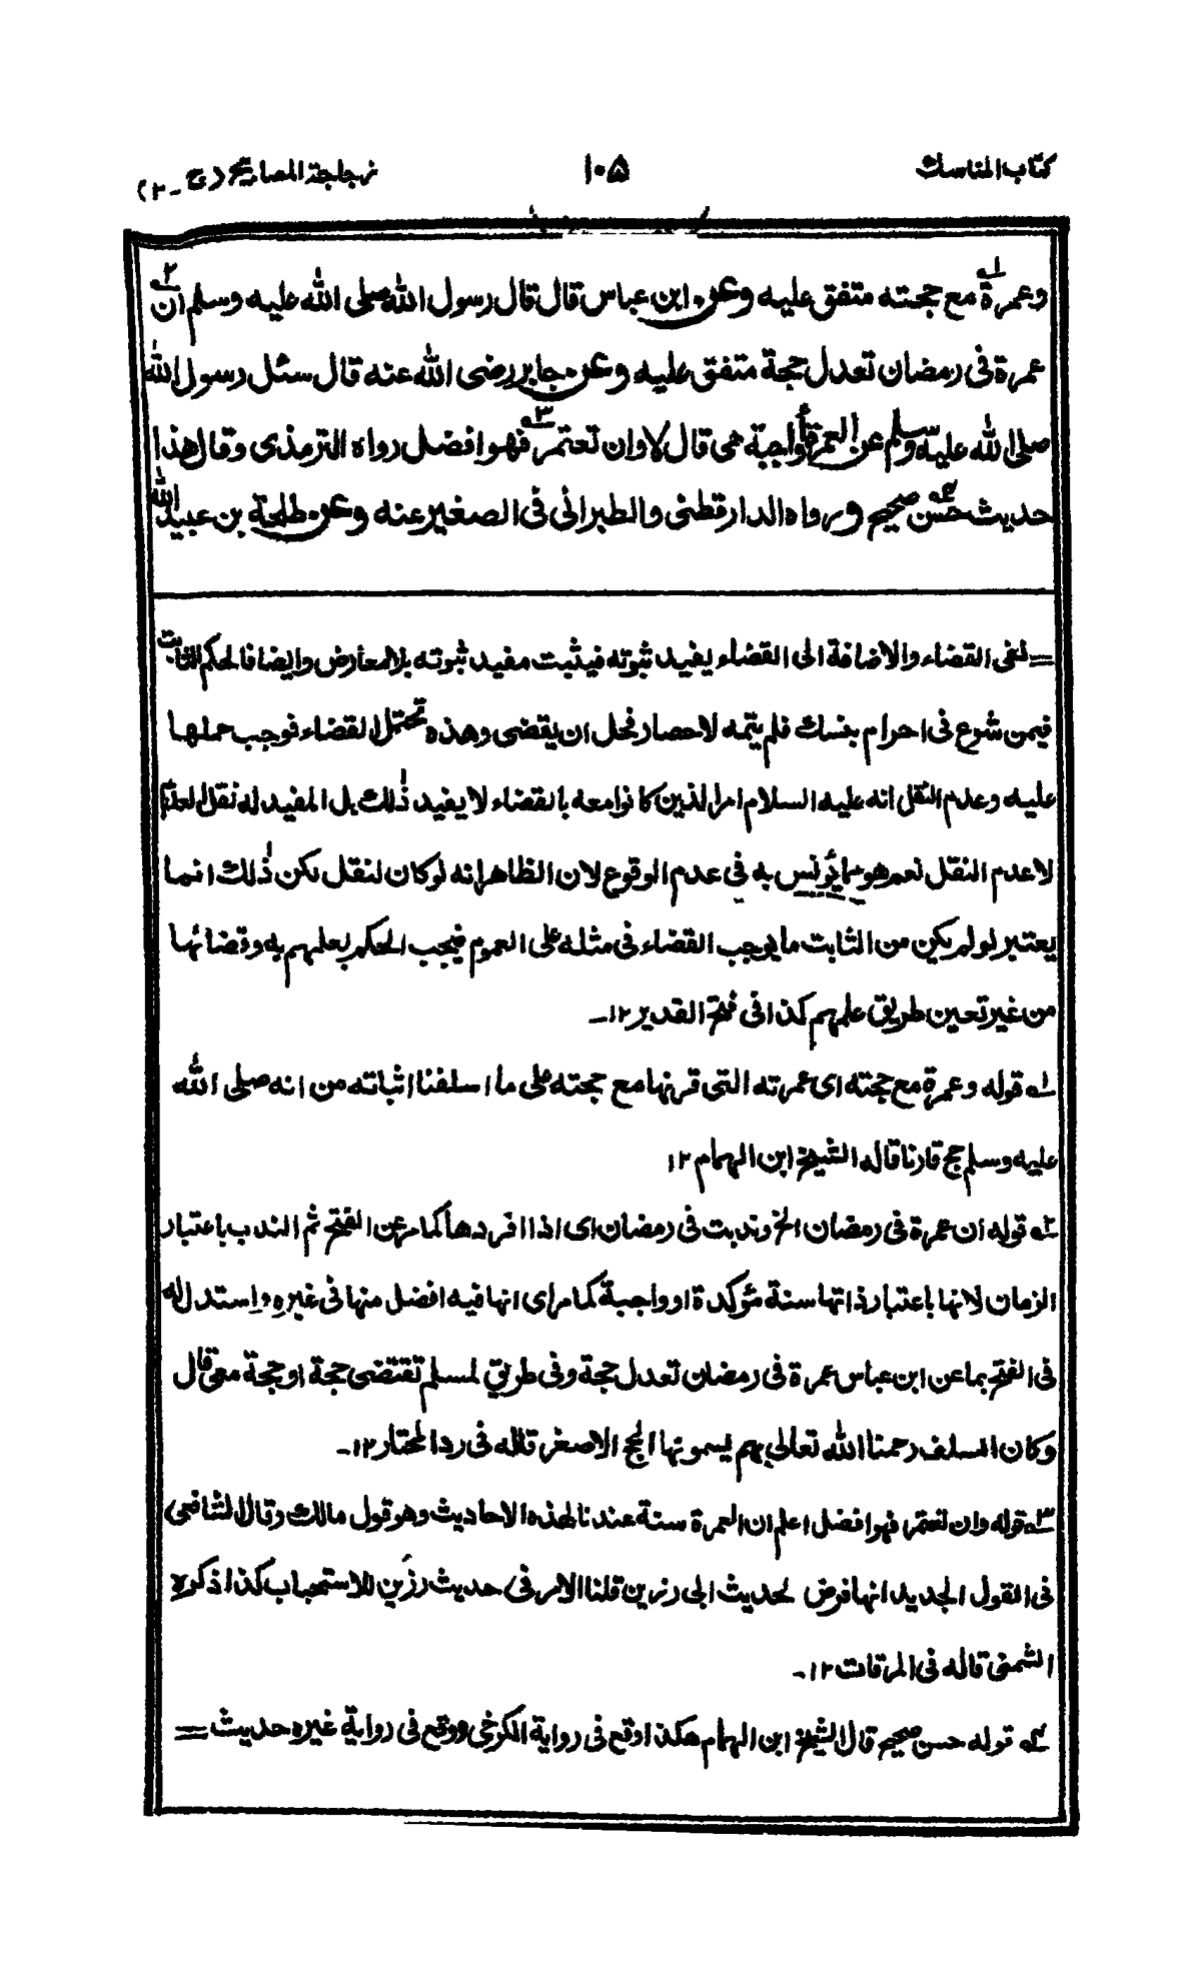 كتاب المناسك ١٠٥ زجاجة المصابيح (ج - ٢)
وعمرة ١ مع حجته متفق عليه وعن ابن عباس قال قال رسول الله صلى الله عليه وسلم ان ٢
عمرة فى رمضان تعدل حجة متفق عليه وعن جابر رضى الله عنه قال سئل رسول الله
صلى الله عليه وسلم عن العمرة أواجبة هى قال لا وان تعتمر ٣ فهو افضل رواه الترمذى وقال هذا
حديث حسن ٤ صحيح ورواه الدارقطنى والطبرانى فى الصغير عنه وعن طلحة بن عبيد الله
= لنفى القضاء والاضافة الى القضاء يفيد ثبوته فيثبت مفيد ثبوته بلا معارض وايضا فالحكم الثابت
فيمن شرع فى احرام بنسك فلم يتمه لاحصار فحل ان يقضى وهذه تحتمل القضاء فوجب حملها
عليه وعدم النقل انه عليه السلام امر الذين كانوا معه بالقضاء لا يفيد ذلك بل المفيد له نقل العدم
لا عدم النقل نعم هو مما يؤنس به فى عدم الوقوع لان الظاهر انه لو كان لنقل لكن ذلك انما
يعتبر لو لم يكن من الثابت ما يوجب القضاء فى مثله على العموم فيجب الحكم بعلمهم به وقضائها
من غير تعين طريق علمهم كذا فى فتح القدير ١٢-
١ قوله وعمرة مع حجته اى عمرته التى قرنها مع حجته على ما اسلفنا اثباته من انه صلى الله
عليه وسلم حج قارنا قاله الشيخ ابن الهمام ١٢
٢ قوله ان عمرة فى رمضان الخ وندبت فى رمضان اى اذا افردها كما مر عن الفتح ثم الندب باعتبار
الزمان لانها باعتبار ذاتها سنة مؤكدة او واجبة كما مر اى انها فيه افضل منها فى غيره واستدل له
فى الفتح بما عن ابن عباس عمرة فى رمضان تعدل حجة وفى طريق لمسلم تقتضى حجة او حجة معى قال
وكان السلف رحمنا الله تعالى بهم يسمونها الحج الاصغر قاله فى رد المحتار ١٢-
٣ قوله وان تعتمر فهو افضل اعلم ان العمرة سنة عندنا لهذه الاحاديث وهو قول مالك وقال الشافعى
فى القول الجديد انها فرض لحديث ابى رزين قلنا الامر فى حديث رزين للاستحباب كذا ذكره
الشمنى قاله فى المرقات ١٢-
٤ قوله حسن صحيح قال الشيخ ابن الهمام هكذا وقع فى رواية الكرخى ووقع فى رواية غيره حديث =